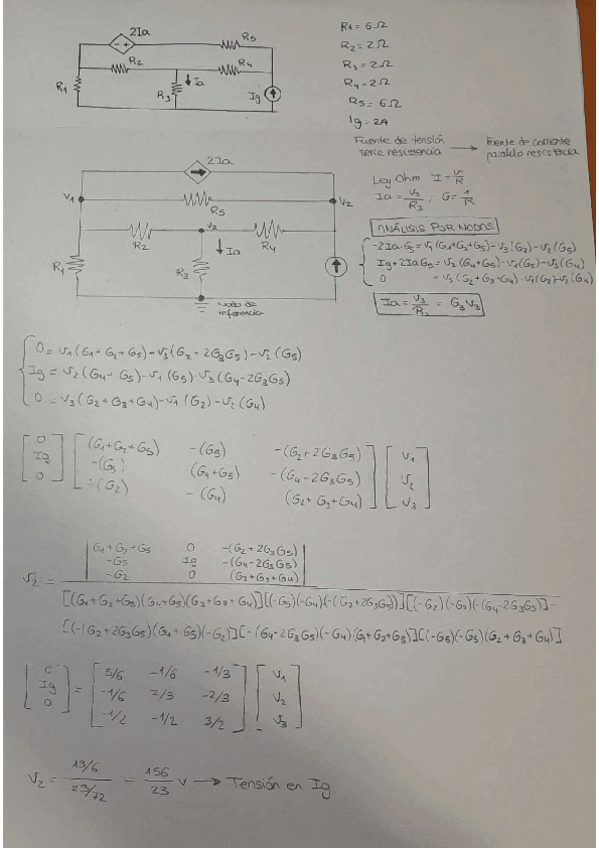 2Ia
R5
R2
R4
R1
Ia
R3
Ig
R1 = 6Ω
R2 = 2Ω
R3 = 2Ω
R4 = 2Ω
R5 = 6Ω
Ig = 2A
Fuente de tensión serie resistencia → Fuente de corriente paralelo resistencia
Ley Ohm I = V/R
Ia = V3/R3 ; G = 1/R
2Ia
V1
V2
R5
V3
R2
R4
Ia
R1
R3
Nodo de referencia
ANÁLISIS POR NODOS
-2Ia·G5 = V1(G1+G2+G5)-V3(G2)-V2(G5)
Ig+2IaG5 = V2(G4+G5)-V1(G5)-V3(G4)
0 = V3(G2+G3+G4)-V1(G2)-V2(G4)
Ia = V3/R3 = G3V3
0 = V1(G1+G2+G5)-V3(G2+2G3G5)-V2(G5)
Ig = V2(G4+G5)-V1(G5)-V3(G4-2G3G5)
0 = V3(G2+G3+G4)-V1(G2)-V2(G4)
[0] [(G1+G2+G5) -(G5) -(G2+2G3G5)] [V1]
[Ig] [-(G5) (G4+G5) -(G4-2G3G5)] [V2]
[0] [-(G2) -(G4) (G2+G3+G4)] [V3]
|G1+G2+G5 0 -(G2+2G3G5)|
V2 = |-G5 Ig -(G4-2G3G5)|
|-G2 0 (G2+G3+G4)|
[(G1+G2+G5)(G4+G5)(G2+G3+G4)][(-G5)(-G4)(-(G2+2G3G5))][(-G2)(-G5)(-(G4-2G3G5)]-
[(-(G2+2G3G5)(G4+G5)(-G2)][-(G4-2G3G5)(-G4)(G1+G2+G5)][(-G5)(-G5)(G2+G3+G4)]
[0] [5/6 -1/6 -1/3] [V1]
[Ig] = [-1/6 2/3 -2/3] [V2]
[0] [-1/2 -1/2 3/2] [V3]
V2 = 13/6 / 23/72 = 156/23 V → Tensión en Ig